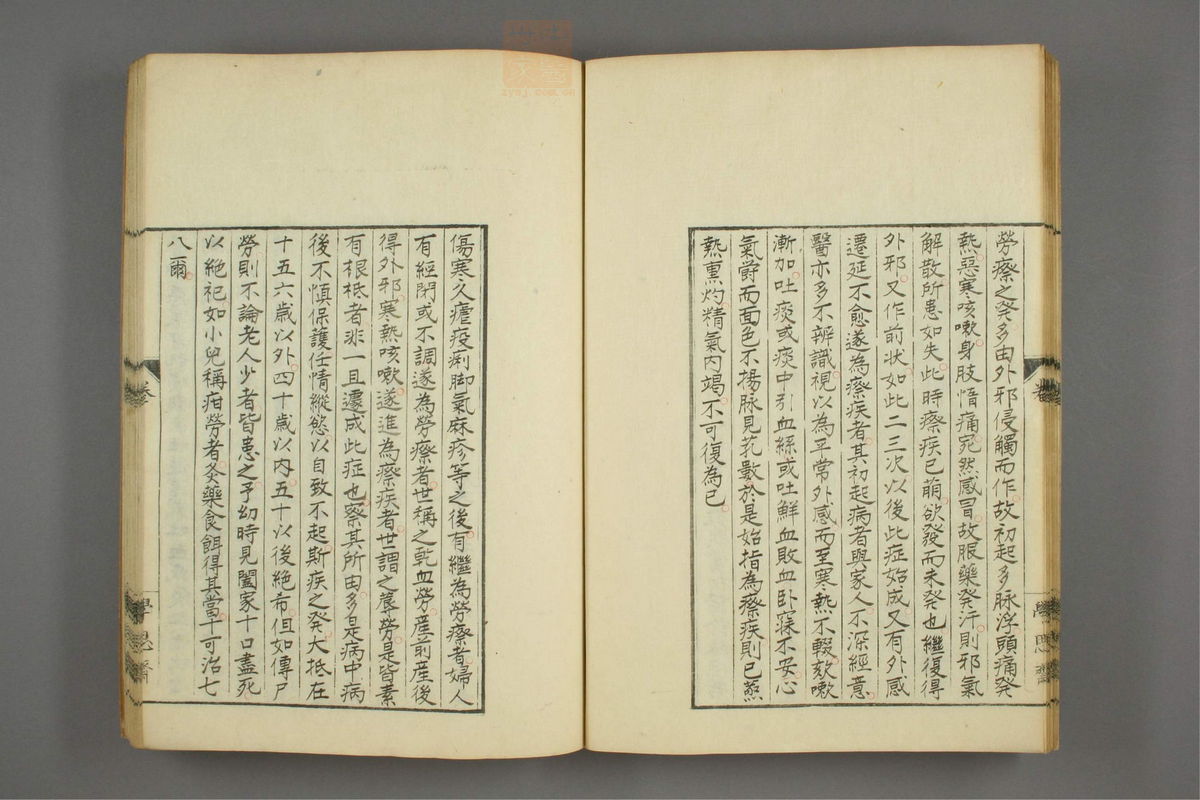 勞瘵之発多由外邪侵觸而作故初起多脉浮頭痛発
熱惡寒咳嗽身肢惰痛宛然感冒故服藥発汗則邪氣
解散所患如失此時瘵疾已萠欲發而未発也繼復得
外邪又作前状如此二三次以後此症始成又有外感
遷延不愈遂為瘵疾者其初起病者與家人不深經意
醫亦多不辨識視以為平常外感而至寒熱不輟欬嗽
漸加吐痰或痰中引血絲或吐鮮血敗血卧寐不安心
氣欝而面色不揚脉見芤數於是始指為瘵疾則已蒸
熱熏灼精氣内竭不可復為已
傷寒久瘧疫痢脚氣麻疹等之後有繼為勞瘵者婦人
有經閉或不調遂為勞瘵者世稱之乾血勞產前産後
得外邪寒熱咳嗽遂進為瘵疾者世謂之蓐勞是皆素
有根柢者非一旦遽成此症也察其所由多是病中病
後不慎保護任情縱慾以自致不起斯疾之発大抵在
十五六歳以外四十歳以内五十以後絶希但如傳尸
勞則不論老人少者皆患之予幼時見闔家十口盡死
以絶祀如小兒稱疳勞者灸藥食餌得其當十可治七
八爾
卷
學思齋
學思齋